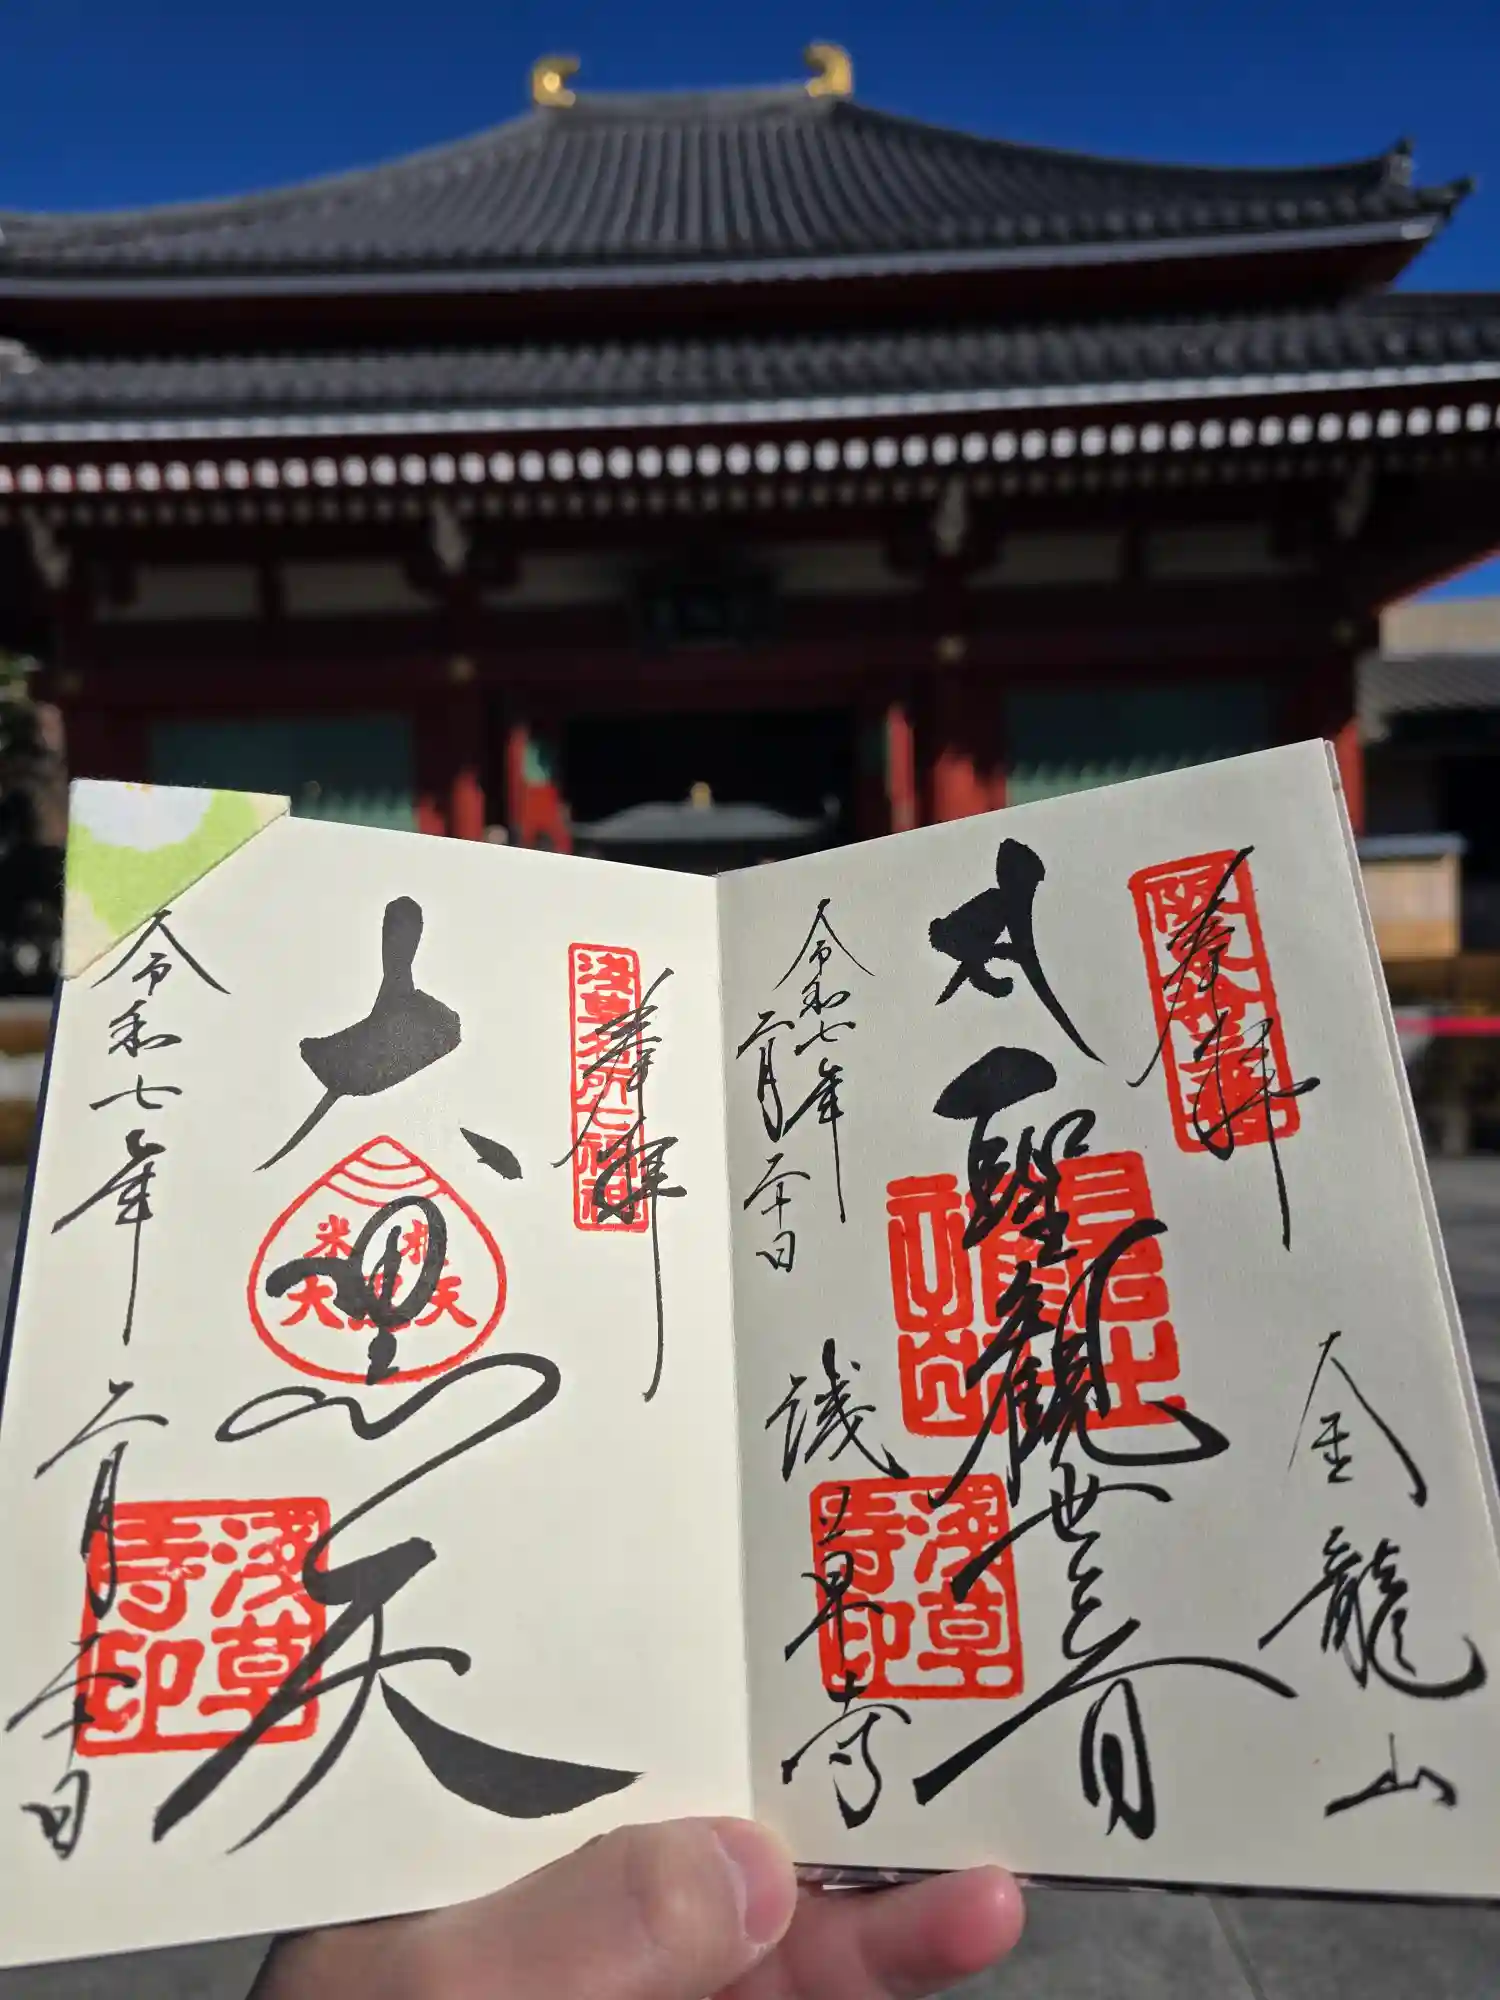 奉拝
坂東拾三番
大聖観世音
金龍山
浅草寺
浅草寺印
令和七年
二月二十日
奉拝
浅草名所七福神
大黒天
米櫃
大黒天
浅草寺印
令和七年
二月二十日